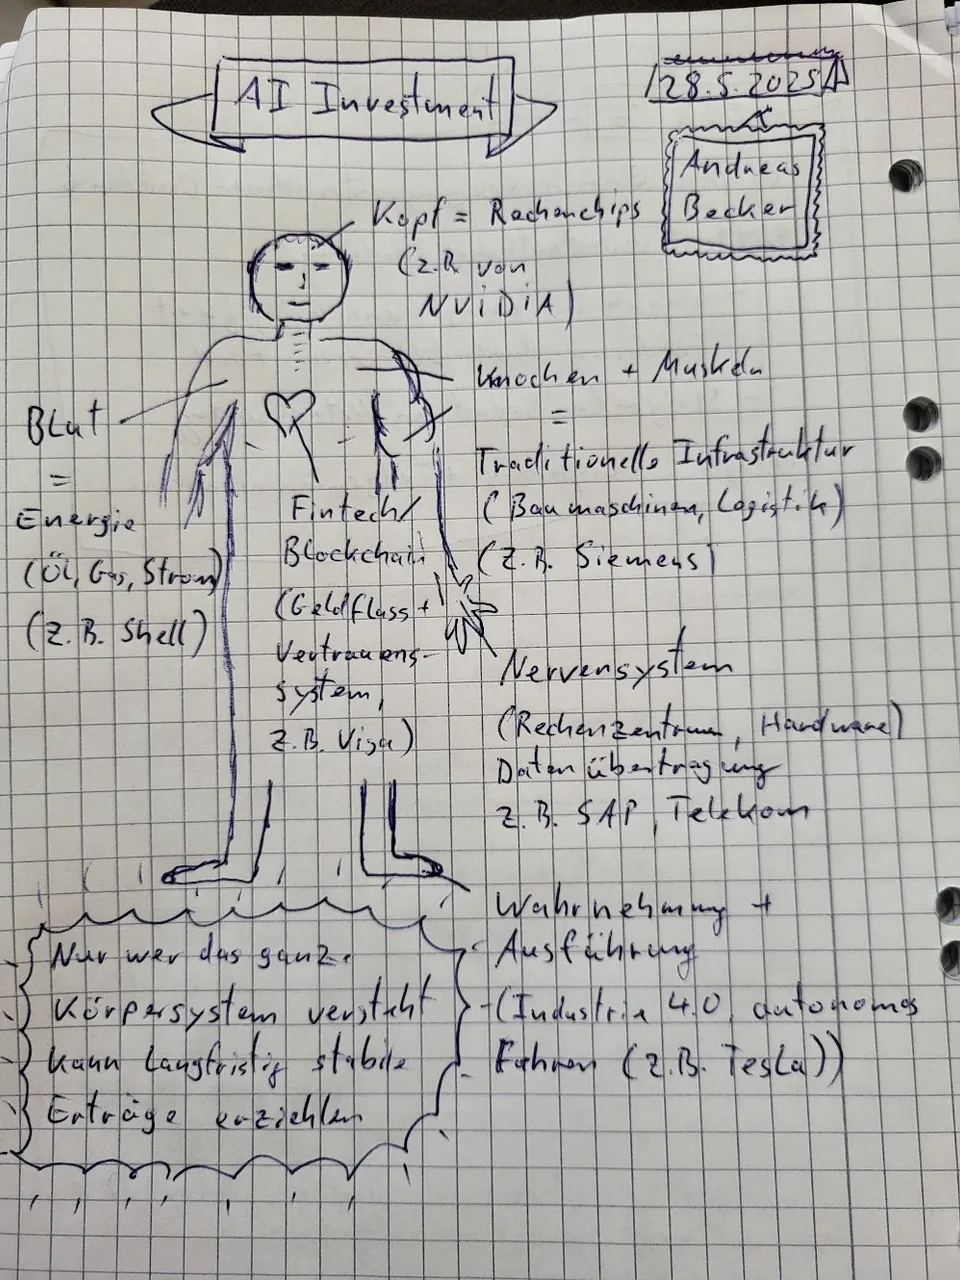 AI Investment
28.5.2025
Andreas
Becker
Kopf = Rechenchips
(z.B. von
NViDiA)
Knochen + Muskeln
=
Traditionelle Infrastruktur
(Baumaschinen, Logistik)
(z.B. Siemens)
Blut
=
Energie
(Öl, Gas, Strom)
(z.B. Shell)
Fintech/
Blockchain
(Geldfluss +
Vertrauens-
system,
z.B. Visa)
Nervensystem
(Rechenzentren, Hardware)
Datenübertragung
z.B. SAP, Telekom
Wahrnehmung +
Ausführung
(Industrie 4.0, autonomes
Fahren (z.B. Tesla))
Nur wer das ganze
Körpersystem versteht
kann langfristig stabile
Erträge erziehlen